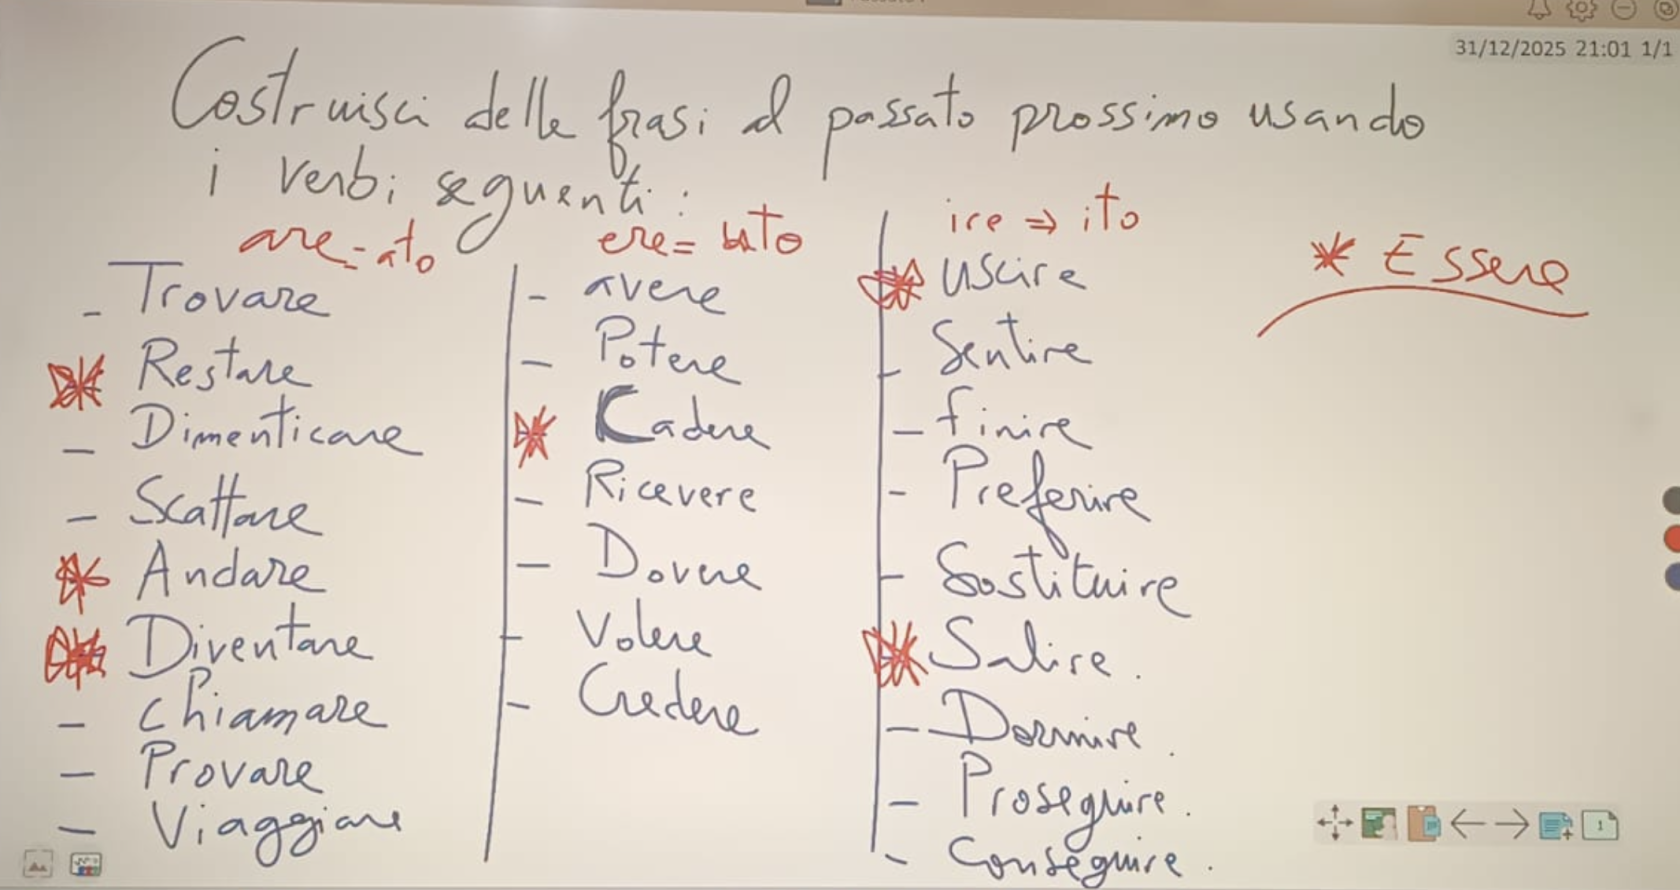 31/12/2025 21:01 1/1
Costruisci delle frasi al passato prossimo usando
i verbi seguenti :
are = ato
- Trovare
* Restare
- Dimenticare
- Scattare
* Andare
* Diventare
- Chiamare
- Provare
- Viaggiare
ere = uto
- avere
- Potere
* Cadere
- Ricevere
- Dovere
- Volere
- Credere
ire ⇒ ito
* Uscire
- Sentire
- finire
- Preferire
- Sostituire
* Salire .
- Dormire .
- Proseguire .
- Conseguire .
* Essere
1